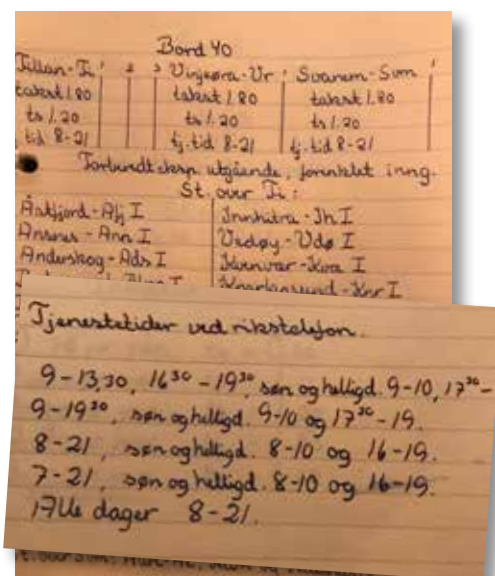 Bord 40
Tillan-Ti Vinjeøra-Vr Svanem-Svm
takst 1.80 takst 1.80 takst 1.80
ts 1.20 ts 1.20 ts 1.20
tid 8-21 tj.tid 8-21 tj.tid 8-21
utgående, forenklet inng.
St. over Ti:
Åstfjord-Afj I Innhitra-Ih I
Ansnes-Ann I Vedøy-Vdø I
Anderskog-Ads I Kvenvær-Kva I
Knarrlagsund-Knr I
Tjenestetider ved rikstelefon.
9-13,30, 16³⁰-19³⁰, søn og helligd. 9-10, 17³⁰-
9-19³⁰, søn og helligd. 9-10 og 17³⁰-19.
8-21, søn og helligd. 8-10 og 16-19.
7-21, søn og helligd. 8-10 og 16-19.
Alle dager 8-21.